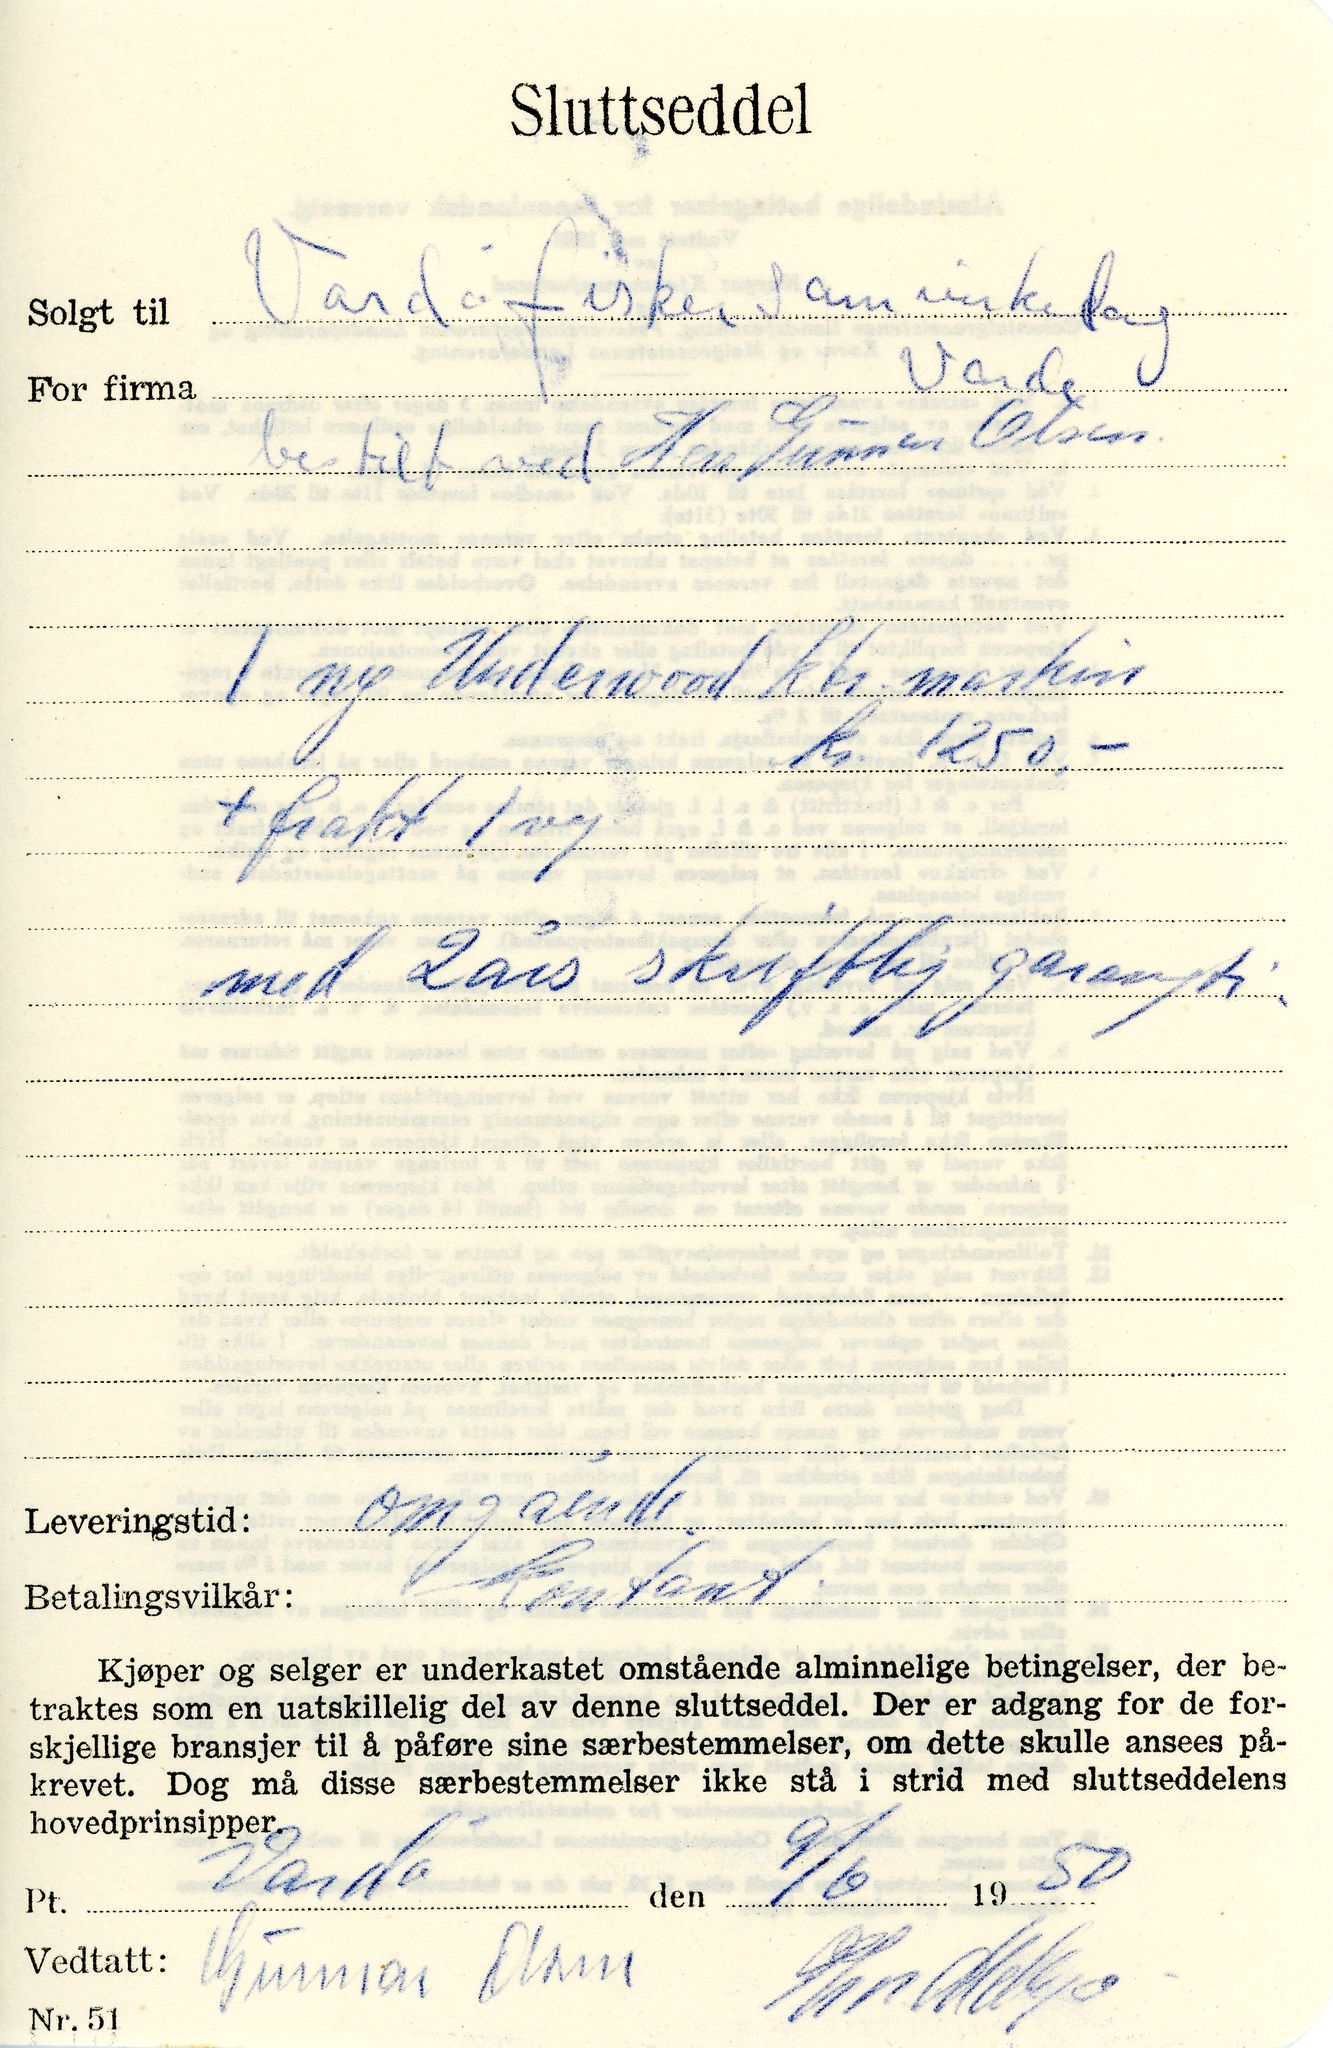 Sluttseddel
Solgt til Vardø fiskersamvirkelag
For firma Vardø
bestilt ved Herr Gunnar Olsen.
1 ny Underwood kor. maskin
kr. 1250,-
+ frakt 1 vg
med 2 års skriftlig garangti.
Leveringstid: omgående.
Betalingsvilkår: Kontant.
Kjøper og selger er underkastet omstående alminnelige betingelser, der be-
traktes som en uatskillelig del av denne sluttseddel. Der er adgang for de for-
skjellige bransjer til å påføre sine særbestemmelser, om dette skulle ansees på-
krevet. Dog må disse særbestemmelser ikke stå i strid med sluttseddelens
hovedprinsipper.
Pt. Vardø den 9/6 1950
Vedtatt: Gunnar Olsen
Nr. 51